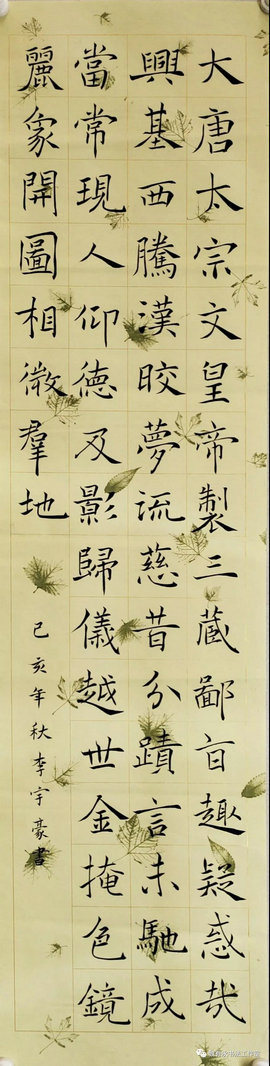 大唐太宗文皇帝製三藏鄙盲趣疑惑哉
興基西騰漢晈夢流慈昔分蹟言未馳成
當常現人仰德及影歸儀越世金掩色鏡
麗象開圖相微羣地
己亥年秋李宇豪書